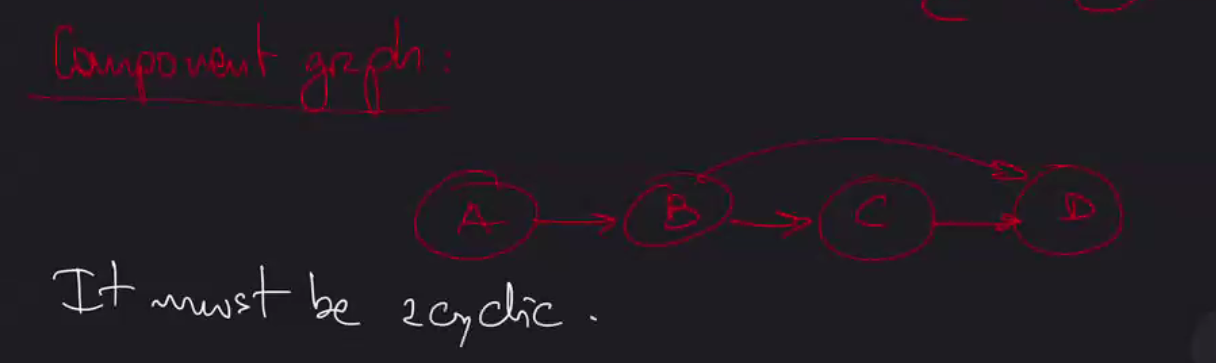 Component graph:
A B C D
It must be acyclic.